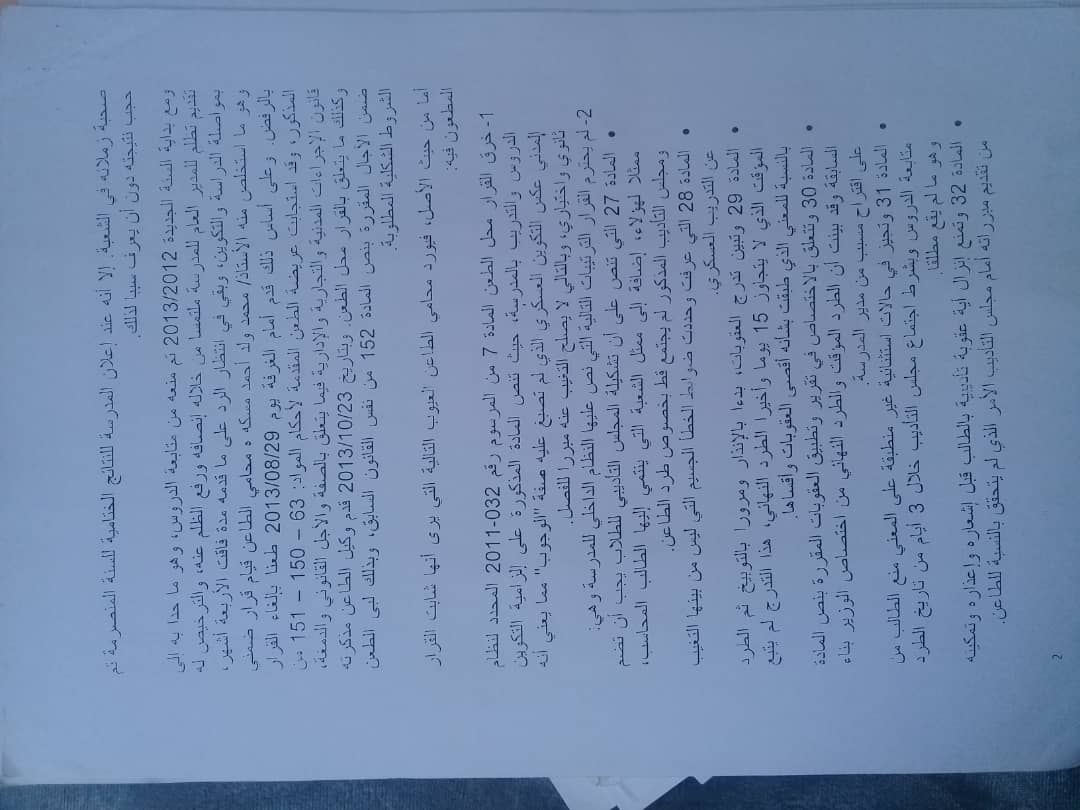 صحبة زملائه في الشعبة إلا أنه عند إعلان المدرسة للنتائج الختامية للسنة المنصرمة تم
حجب نتيجته دون أن يعرف سببا لذلك.
ومع بداية السنة الجديدة 2013/2012 تم منعه من متابعة الدروس، وهو ما حدا به الى
تقديم تظلم للمدير العام للمدرسة ملتمسا من خلاله إنصافه ورفع الظلم عنه، والترخيص له
بمواصلة الدراسة والتكوين، وبقي في انتظار الرد على ما قدمه مدة فاقت الأربعة أشهر،
وهو ما استخلص منه الأستاذ/ محمد ولد احمد مسكه ه محامي الطاعن قيام قرار ضمني
بالرفض. وعلى أساس ذلك قدم أمام الغرفة يوم 2013/08/29 طعنا بإلغاء القرار
المذكور، وقد استجابت عريضة الطعن المقدمة لأحكام المواد: 63 – 150 – 151 من
قانون الإجراءات المدنية والتجارية والإدارية فيما يتعلق بالصفة والأجل القانوني والدمغة،
وكذلك ما يتعلق بالقرار محل الطعن وبتاريخ 2013/10/23 قدم وكيل الطاعن مذكرته
ضمن الأجل المقررة بنص المادة 152 من نفس القانون السابق، وبذلك لبى الطعن
الشروط الشكلية المطلوبة.
أما من حيث الأصل، فيورد محامي الطاعن العيوب التالية التي يرى أنها شابت القرار
المطعون فيه:
1- خرق القرار محل الطعن المادة 7 من المرسوم رقم 032-2011 المحدد لنظام
الدروس والتدريب بالمدرسة، حيث تنص المادة المذكورة على إلزامية التكوين
المهني عكس التكوين العسكري الذي لم تصبغ عليه صفة "الوجوب" مما يعني أنه
ثانوي واختياري، وبالتالي لا يصلح التغيب عنه مبررا للفصل.
2- لم يحترم القرار الترتيبات التالية التي نص عليها النظام الداخلي للمدرسة وهي:
• المادة 27 التي تنص على أن تشكيلة المجلس التأديبي للطلاب يجب أن تضم
ممثلا للولاء، إضافة إلى ممثل الشعبة التي ينتمي إليها الطالب المحاسب،
ومجلس التأديب المذكور لم يجتمع قط بخصوص طرد الطاعن.
• المادة 28 التي عرفت وحددت ضوابط الخطأ الجسيم التي ليس من بينها التغيب
عن التدريب العسكري.
• المادة 29 وتبين تدرج العقوبات، بدءا بالإنذار ومرورا بالتوبيخ ثم الطرد
المؤقت الذي لا يتجاوز 15 يوما وأخيرا الطرد النهائي، هذا التدرج لم يتبع
بالنسبة للمعني الذي طبقت بشأنه أقصى العقوبات وأقساها.
• المادة 30 وتتعلق بالاختصاص في تقرير وتطبيق العقوبات المقررة بنص المادة
السابقة وقد بينت أن الطرد المؤقت والطرد النهائي من اختصاص الوزير بناء
على اقتراح مسبب من مدير المدرسة
• المادة 31 وتجيز في حالات استثنائية غير منطبقة على المعني منع الطالب من
متابعة الدروس وبشرط اجتماع مجلس التأديب خلال 3 أيام من تاريخ الطرد
وهو ما لم يقع مطلقا.
• المادة 32 وتمنع انزال أية عقوبة تأديبية بالطالب قبل إشعاره وإعذاره وتمكينه
من تقديم مبرراته أمام مجلس التأديب الأمر الذي لم يتحقق بالنسبة للطاعن.
2